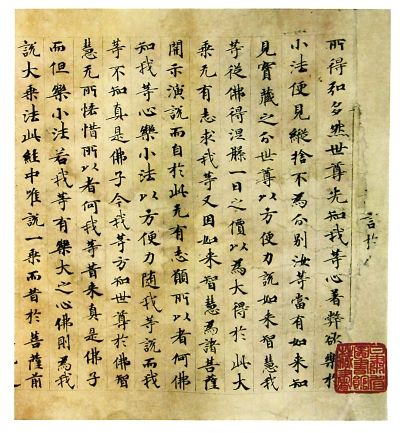 言於
所得弘多然世尊先知我等心著弊欲樂於
小法便見縱捨不為分別汝等當有如來知
見寶藏之分世尊以方便力說如來智慧我
等從佛得涅槃一日之價以為大得於此大
乘无有志求我等又因如來智慧為諸菩薩
開示演說而自於此无有志願所以者何佛
知我等心樂小法以方便力隨我等說而我
等不知真是佛子今我等方知世尊於佛智
慧无所悋惜所以者何我等昔來真是佛子
而但樂小法若我等有樂大之心佛則為我
說大乘法此經中唯說一乘而昔於菩薩前